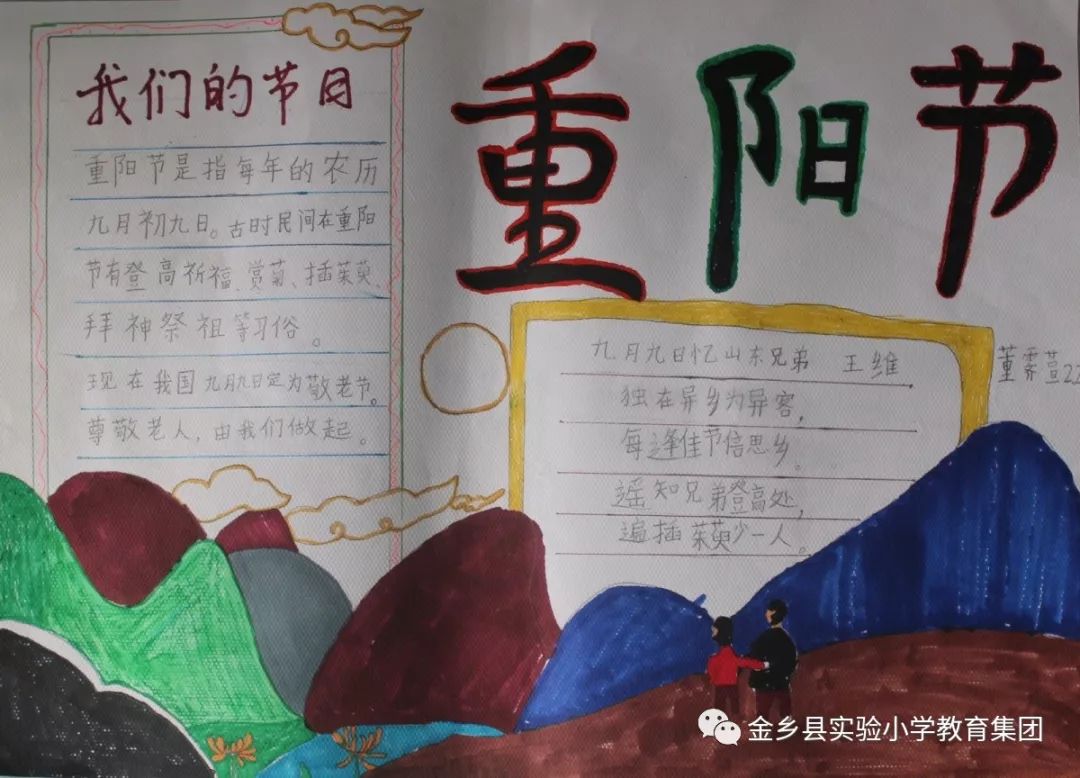 重阳节
我们的节日
重阳节是指每年的农历
九月初九日。古时民间在重阳
节有登高祈福、赏菊、插茱萸、
拜神祭祖等习俗。
现在我国九月九日定为敬老节。
尊敬老人，由我们做起。
九月九日忆山东兄弟 王维
独在异乡为异客，
每逢佳节信思乡。
遥知兄弟登高处，
遍插茱萸少一人。
金乡县实验小学教育集团